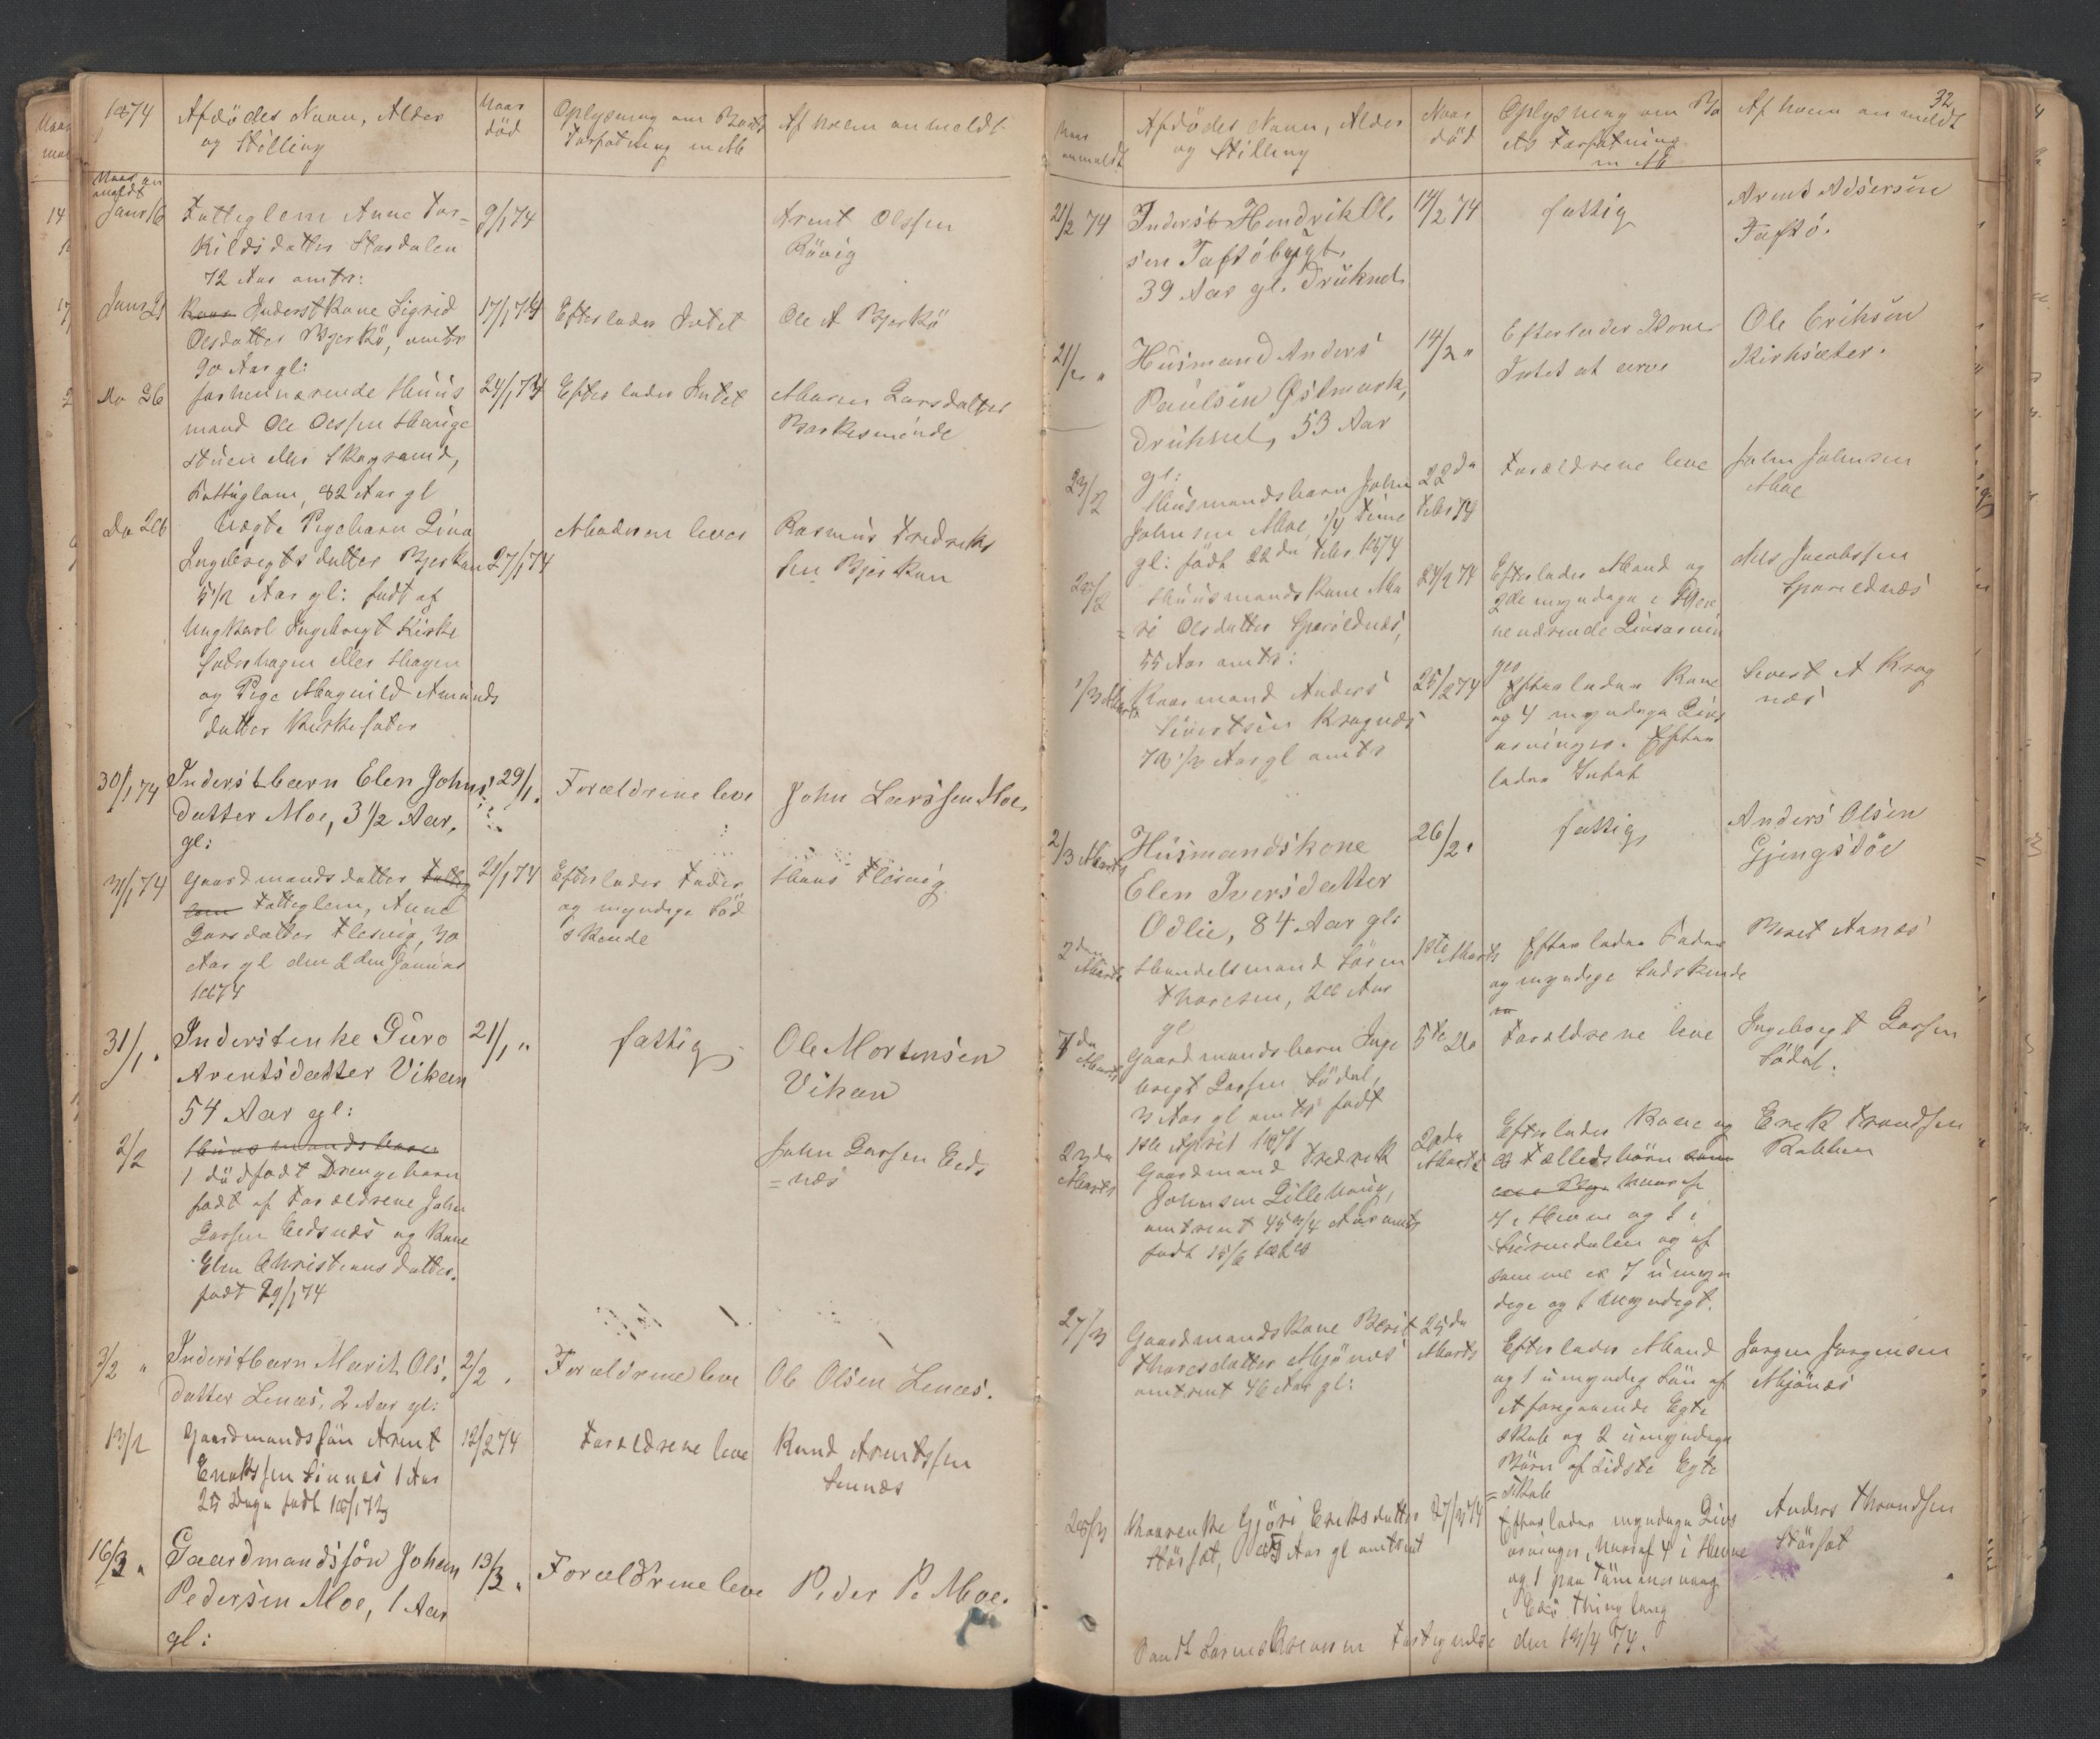 1874
Afdödes Navn, Alder
og Stilling
Naar
död
Oplysning om Boets
Forfatning m M
Af hvem anmeldt
Naar an
meldt
Janr 16
Fatteglem Anne Tor=
kildsdatter Stordalen
72 Aar omtr:
9/1 74
Arent Olssen
Rövig
Janr 21
Inderst Kone Sigrid
Olsdatter Bjerkö, omtr
90 Aar gl:
17/1 74
Efterlader Intet
Ole A Bjerkö
Do 26
forhenværende Huus
mand Ole Olssen Hauge
stuen eller Skogrand,
Fattiglem, 82 Aar gl
24/1 74
Efterlader Intet
Maren Larsdatter
Do 28
Uægte Pigebarn Lina
Ingebrigtsdatter Bjerkan
5 1/2 Aar gl: født af
Ungkarl Ingebrigt Kirke
sæterhagen eller Hagen
og Pige Magnild Amunds
datter Kirkesæter
27/1 74
Moderen lever
Rasmus Fredriks
sen Bjerkan
30/1 74
Inderstbarn Elen Johns
datter Moe, 3 1/2 Aar,
gl:
29/1 "
Forældrene leve
John Larssen Moe,
31/1 74
Gaardmandsdatter Fattig
lem Fatteglem, Anne
Larsdatter Flesvig, 30
Aar gl den 2den Januar
1874
21/1 74
Efterlader Fader
og myndige Sød
skende
Hans Flesvig
31/1 "
Inderstenke Guro
Arentsdatter Vikan
54 Aar gl:
21/1 "
fattig
Ole Mortensen
Vikan
2/2
Huusmandsbarn
1 dødfødt Drengebarn
født af Forældrene John
Larsen Eidsnes og Kone
Elen Christiansdatter.
født 29/1 74
John Larsen Eids
=næs
3/2 "
Inderstbarn Marit Ols.
datter Lenæs, 2 Aar gl:
2/2 "
Forældrene leve
Ole Olsen Lenæs.
13/2
Gaardmandssøn Arent
Knutssen Sinnes 1 Aar
25 Dage født 18/1 73
12/2 74
Forældrene leve
Knud Arentssen
Sinnæs
16/3 "
Gaardmandssön Johan
Pedersen Moe, 1 Aar
gl:
13/3 "
Forældrene leve
Peder P. Moe.
32
Naar
anmeldt
Afdödes Navn, Alder
og Stilling
Naar
död
Oplysning om Bo
ets Forfatning
m M
Af hvem anmeldt
21/2 74
Inderst Hendrik Ol.
sen Taftöbugt,
39 Aar gl. Druknet
14/2 74
fattig
Arnt Adsersen
Taftö.
21/2 "
Husmand Anders
Paulsen Østmark,
Druknet, 53 Aar
gl:
14/2 "
Efterlader Kone
Intet at arve
Ole Eriksen
Kirksæter.
23/2
Husmandsbarn John
Johnsen Moe, 1/4 Time
gl: født 22de Febr 1874
22de
Febr 74
Forældrene leve
John Johnsen
Moe
28/2
Huusmands Kone Ma
=ri Olsdatter Sparildnæs,
55 Aar omtr:
24/2 74
Efterlader Mand og
2de myndige i Hjem
neværende Livsarvin
ger
Nils Jacobssen
Sparildnæs
1/3 Marts
Kaarmand Anders
Sivertsen Krognæs
78 1/2 Aar gl omtr
25/2 74
Efterlader Kone
og 4 myndige Livs
arvinger. Efter
lader Intet
Sivert A Krog
næs
2/3 Marts
Husmandskone
Elen Iversdatter
Odlie, 84 Aar gl:
26/2 "
fattig
Anders Olsen
Gjengstöe
2den
Marts
Handelsmand Sören
Thoresen, 28 Aar
gl
1ste Marts
Efterlader Fader
og myndige Sødskende
Beret Aanæs
7de
Marts
Gaardmandsbarn Inge
brigt Larsen Södal,
3 Aar gl omtr født
1ste April 1871
5te Do
Forældrene leve
Ingebrigt Larsen
Södal.
23de
Marts
Gaardmand Fredrik
Johnsen Lillehaug,
omtrent 45 3/4 Aar omtr
født 15/6 1828
20de
Marts
Efterlader Kone og
8 Fælledsbörn som
hvoraf
7 i Hevne og 1 i
Surendalen og af
samme er 7 umyn
dige og 1 Myndigt.
Erik Trondsen
Rabben
27/3
Gaardmands Kone Berit
Thoresdatter Mjönæs
omtrent 46 Aar gl:
25de
Marts
Efterlader Mand
og 1 umyndig Sön af
et foregaaende Egte
skab og 2 umyndige
Börn af sidste Egte
=skab
Jørgen Jørgensen
Mjönæs
28/3
Kaarenke Gjöri Eriksdatter
Störset, Aar gl omtrent
27/3 74
Efterlader myndige Livs
arvinger, hvoraf 4 i Hevne
og 1 paa
i Edö Thinglaug
Anders Throndsen
Störset
Sendt Sorenskriveren Fortegnelse den 13/4 74.